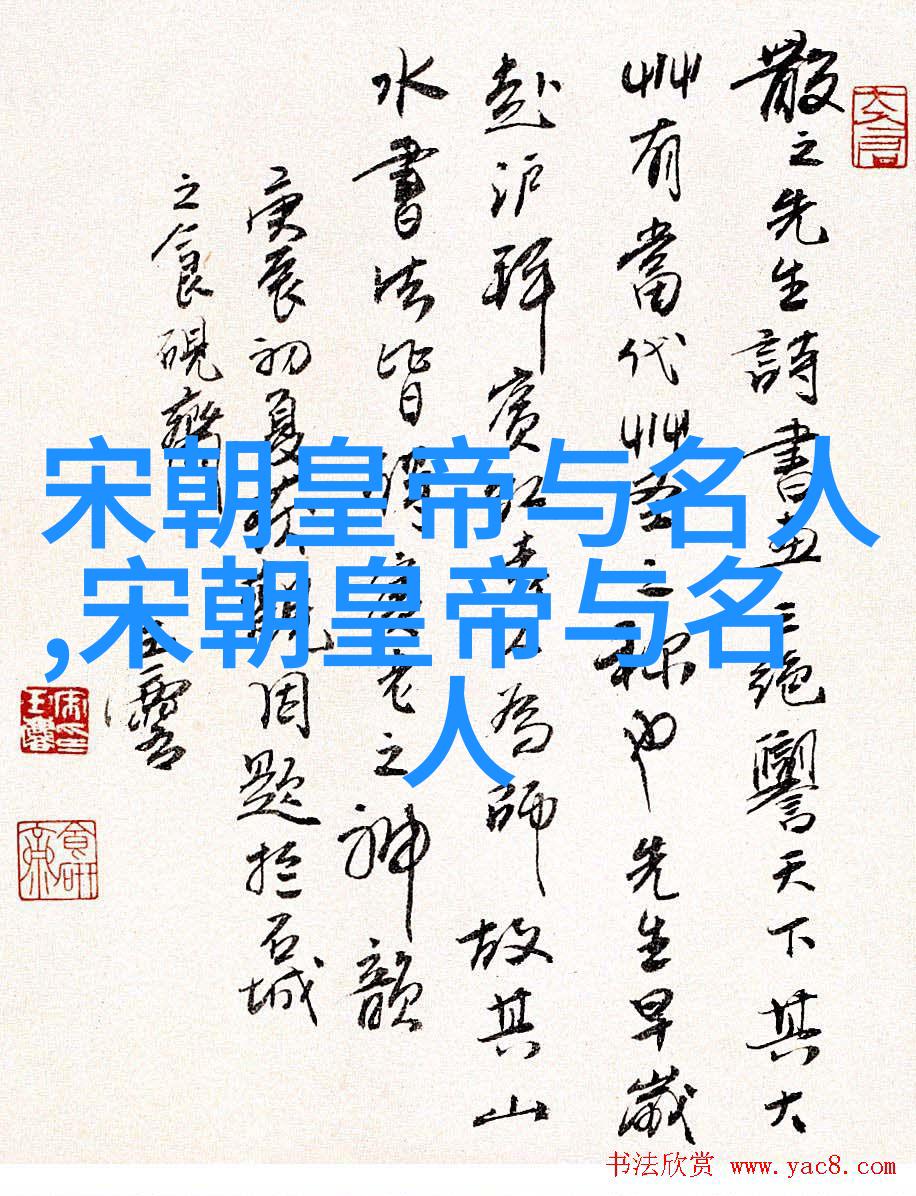 散之先生詩書画三絕譽天下其大
艸有當代艸聖之稱也先生早歲
赴沪拜賓虹老人為師故其山
水書法皆得賓老之神韻
庚辰初夏获觀因題於石城
之食硯齋
宋朝皇帝与名人
,宋朝皇帝与名
人
书法欣赏 www.yac8.com